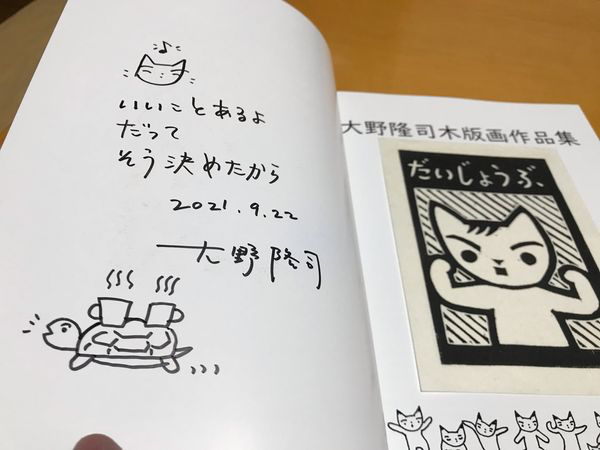 いいことあるよ
だって
そう決めたから
2021.9.22
大野隆司
大野隆司木版画作品集
だいじょうぶ、